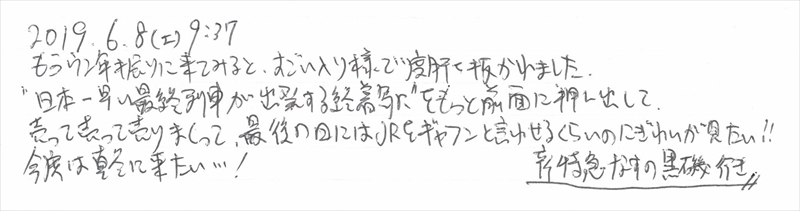 2019.6.8(土)9:37
もう ウン年振りに来てみると、すごい入り様で度肝を抜かれました.
"日本一早い最終列車が出発する終着駅"をもっと前面に押し出して.
売って売って売りまくって、最後の日にはJRをギャフンと言わせるくらいのにぎわいが見たい!!
今度は真冬に来たい…!
新特急なすの黒磯行き